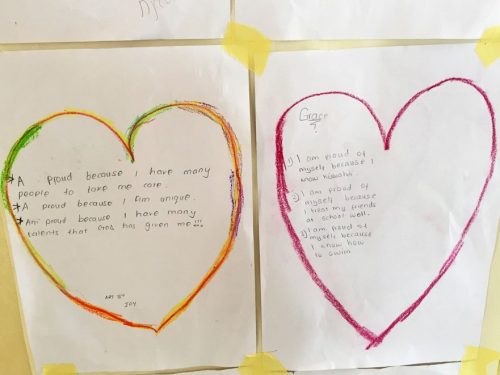 A proud because I have many
people to take me care.
A proud because I am unique.
Am proud because I have many
talents that God has given me!!!
ART BY
JOY
Grace
1) I am proud of
myself because I
know Kiswahili
I am proud of
myself because
I treat my friends
at school well.
I am proud of
myself because
I know how
to swim